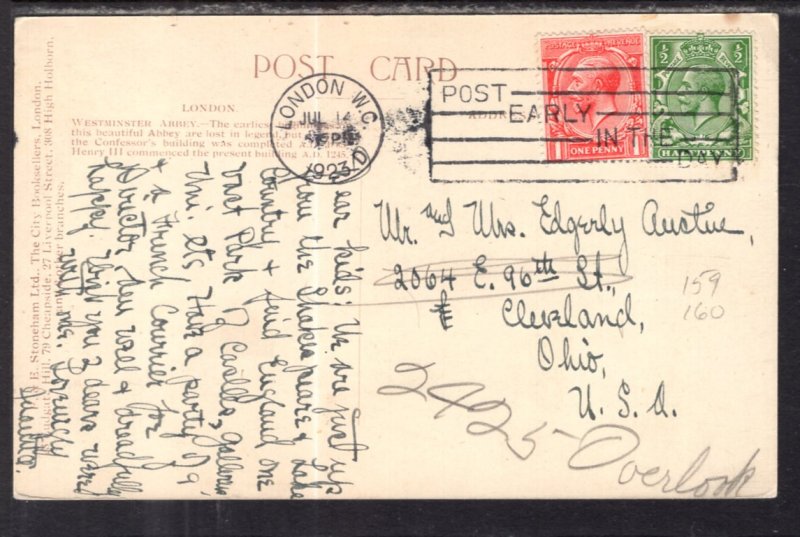 POST CARD
LONDON.
WESTMINSTER ABBEY.—The earliest
this beautiful Abbey are lost in legend, but
the Confessor's building was completed A.D.
Henry III commenced the present building A.D. 1245.
ADDRE
LONDON. W.C.
JUL 14
PM
1923
POST
EARLY
IN THE
DAY
POSTAGE REVENUE
ONE PENNY
1/2 1/2
HALFPENNY
E. Stoneham Ltd., The City Booksellers, London.
Ludgate Hill, 79 Cheapside, 27 Liverpool Street, 308 High Holborn,
and other branches.
Dear kids: We are just up
from the Shakespeare & Lake
Country & find England one
vast Park of Castles, galleries
Uni. etc Have a party of 9
& a French Courier for
Director. Am well & dreadfully
happy. Wish you 2 dears were
with me. Lovingly
Mr. and Mrs. Edgerly Austin,
2064 E. 96th St.,
Cleveland,
Ohio,
U. S. A.
2425 Overlook
159
160